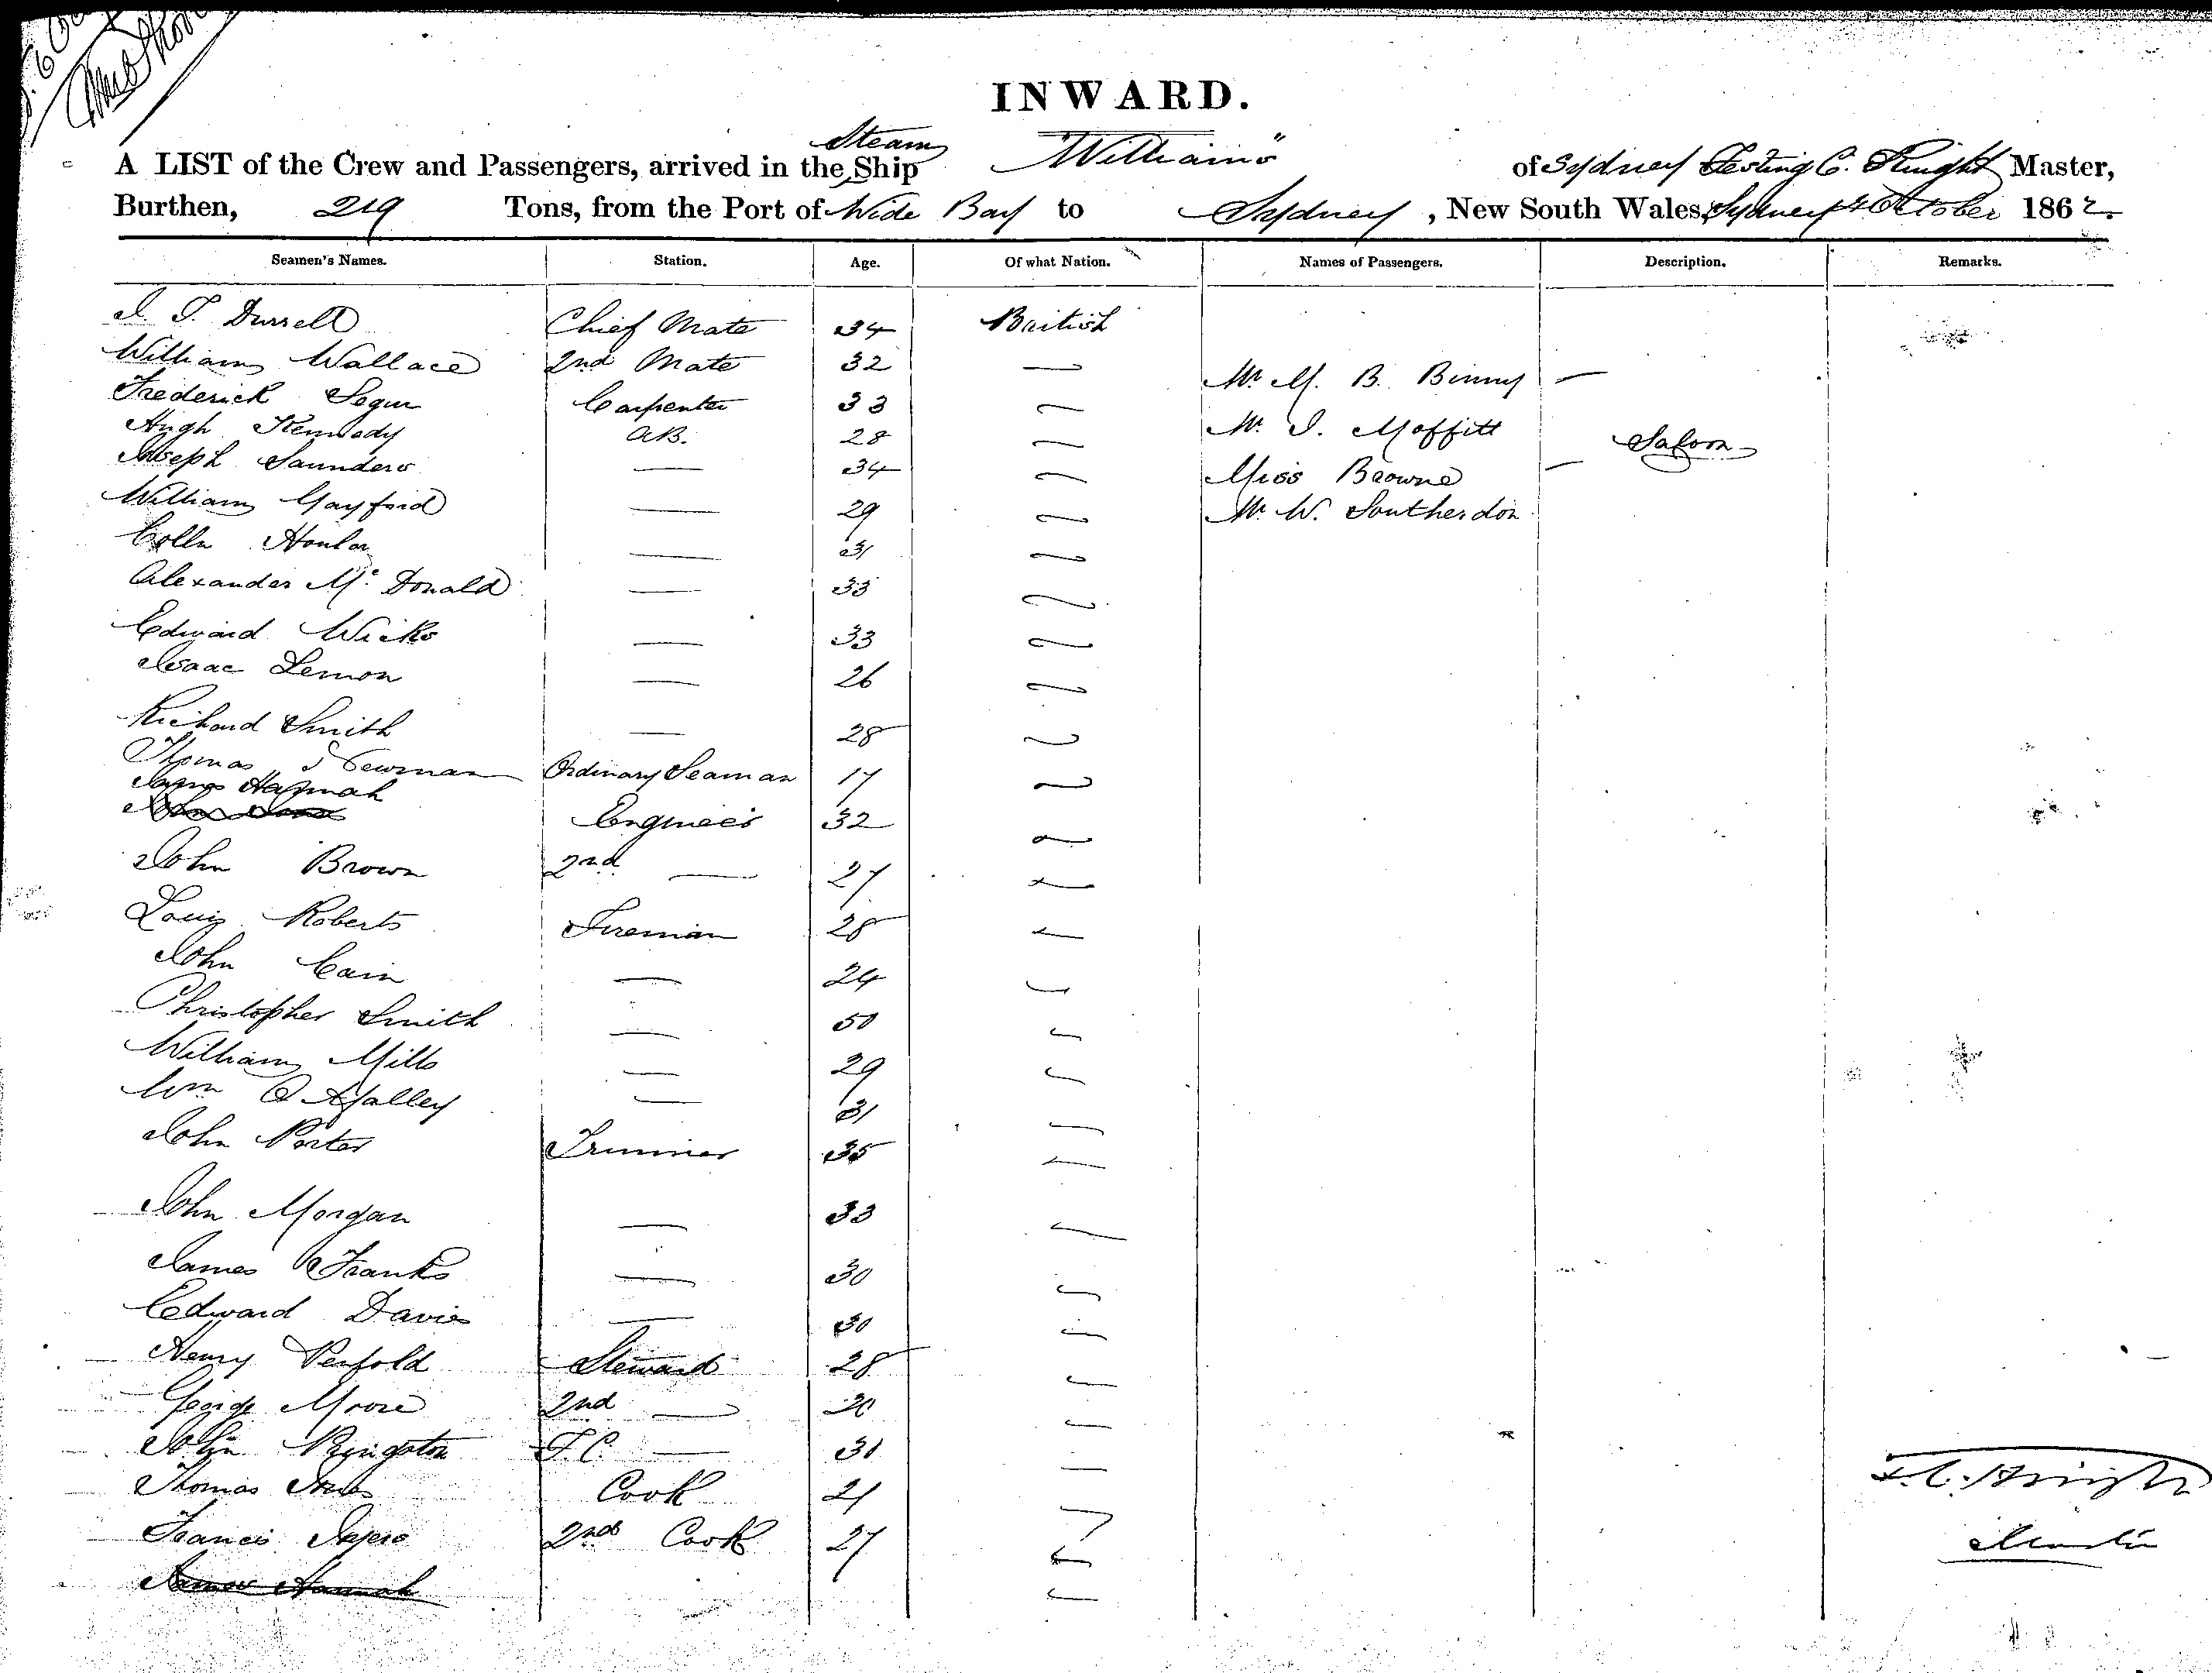 INWARD.
Steam
A LIST of the Crew and Passengers, arrived in the Ship "Williams" of Sydney C. Knight Master,
Burthen, 219 Tons, from the Port of Wide Bay to Sydney, New South Wales, Sydney 4 October 1862.
Seamen's Names. Station. Age. Of what Nation. Names of Passengers. Description. Remarks.
Durrell Chief Mate 34 British
William Wallace 2nd Mate 32 — Mr. M. B. Binny —
Frederick Segur Carpenter 33 —
Hugh Kennedy A.B. 28 — Mr. J. Moffitt Saloon
Joseph Saunders — 34 — Miss Browne —
William Gayford — 29 — Mr. W. Southerdon
— 31 —
Alexander McDonald — 33 —
Edward Wicks — 33 —
Isaac Lemon — 26 —
Richard Smith — 28 —
Thomas Newman Ordinary Seaman 17 —
James Hannah
Engineer 32 —
John Brown 2nd — 27 —
Louis Roberts Fireman 28 —
John Cain — 24 —
Christopher Smith — 50 —
William Mills — 29 —
Wm O'Halley — 31 —
John Porter Trimmer 35 —
John Morgan — 33 —
James Franks — 30 —
Edward Davis — 30 —
Henry Penfold Steward 28 —
George Moore 2nd — 20 —
John Ringston F.C. — 31 —
Thomas Cook 21 —
Francis 2nd Cook 27 —
James Hannah —
F. C. Knight
Master